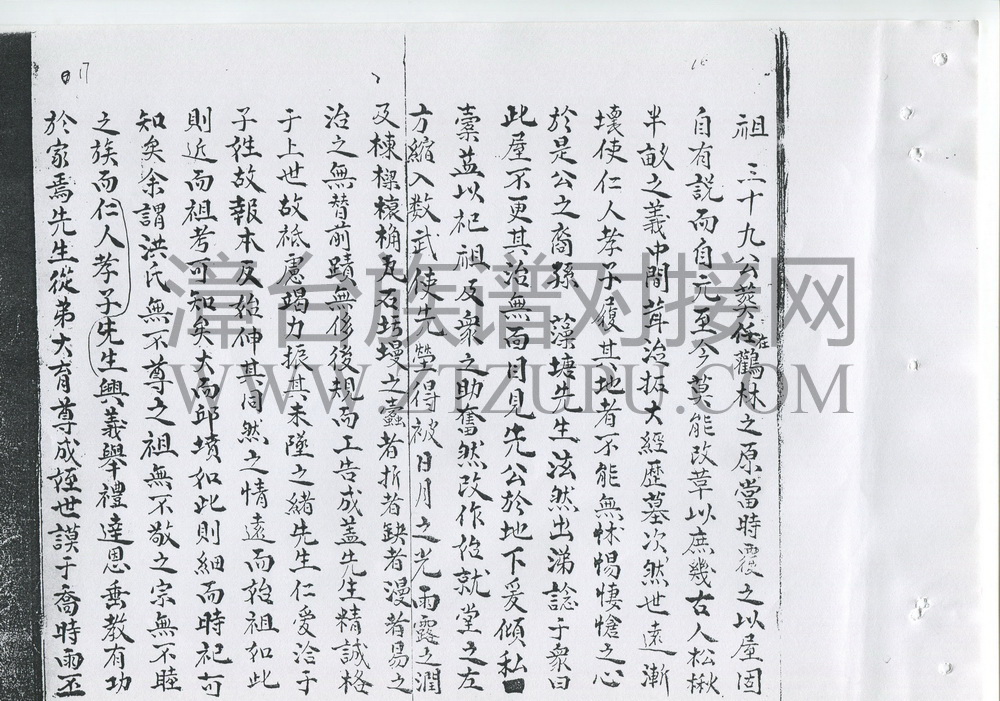 祖三十九公葬在鸛林之原當時覆之以屋固
自有説而自元至今莫能改革以庶幾古人松楸
半畝之義中間葺治拆大經歷墓次然世遠漸
壞使仁人孝子履其地者不能無怵惕悽愴之心
於是公之裔孫 藻塘先生泫然出涕諗于衆曰
此屋不更其治無面目見先公於地下爰傾私
橐蓋以祀祖及衆之助奮然改作俗就堂之左
方縮入数武使先塋得被日月之光雨露之潤
及棟樑榱桷瓦石圬墁之蠹者折者缺者漫者易之
治之無替前蹟無侈後規而工告成蓋先生精誠格
于上世故祗慮竭力振其未墜之緒先生仁愛洽于
子姓故報本反始伸其同然之情遠而始祖如此
則近而祖考可知矣大而邱墳如此則細而時祀可
知矣余謂洪氏無不尊之祖無不敬之宗無不睦
之族而仁人孝子先生興義舉禮達恩垂教有功
於家焉先生從弟大育尊成姪世謨于喬時雨丕
17
16
漳台族谱对接网
WWW.ZTZUPU.COM